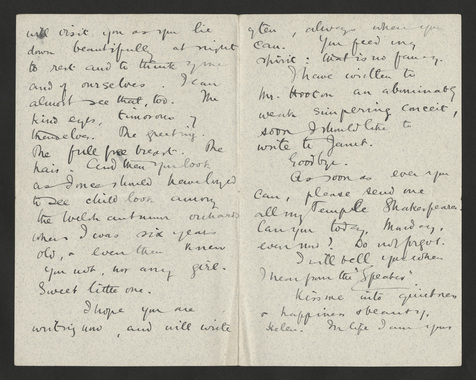 will visit you as you lie
down beautifully at night
to rest and to think of me
and of ourselves. I can
almost see that, too. The
kind eyes, timorous of
themselves. The greeting.
The full free breast. The
hair. And then you look
as I once should have longed
to see a child look among
the Welsh autumn orchards
when I was six years
old, & even then knew
you not, nor any girl.
Sweet little one.
I hope you are
writing now, and will write
often, always when you
can. You feed my
spirit: that is no fancy.
I have written to
Mr. Hooton an abominably
weak simpering conceit,
soon I should like to
write to Janet.
Goodbye.
As soon as ever you
can, please send me
all my Temple Shakespeares.
Can you today, Monday,
even now? Do not forget.
I will tell you when
I hear from the "Speaker".
Kiss me into quietness
& happiness & beauty,
Helen. In life I am yours